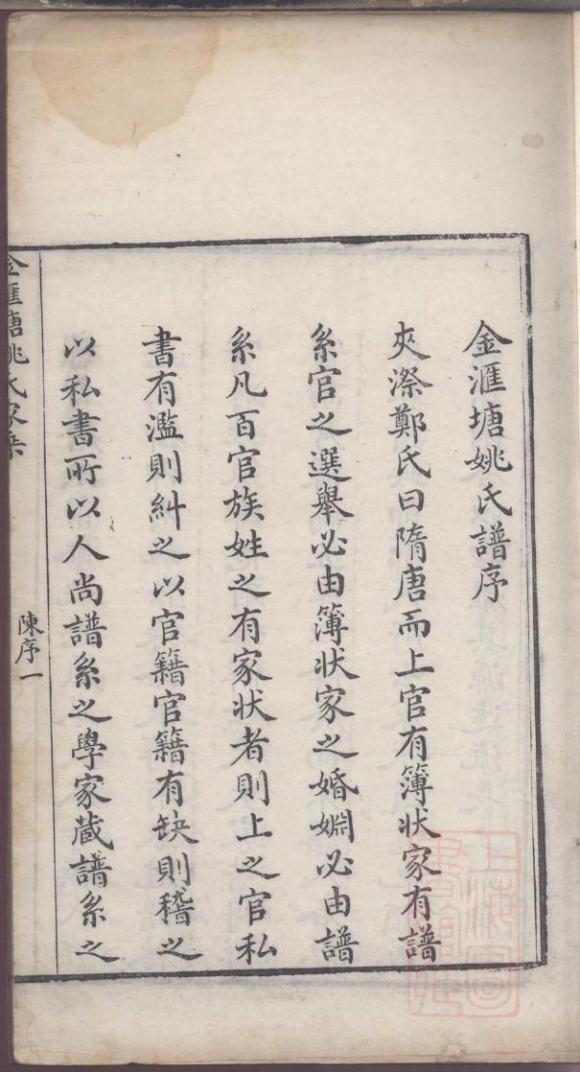 金滙塘姚氏譜序
夾漈鄭氏曰隋唐而上官有簿狀家有譜
系官之選舉必由簿狀家之婚婣必由譜
系凡百官族姓之有家狀者則上之官私
書有濫則糾之以官籍官籍有缺則稽之
以私書所以人尚譜系之學家藏譜系之
金滙塘姚氏家乘
陳序一
上海圖書館藏